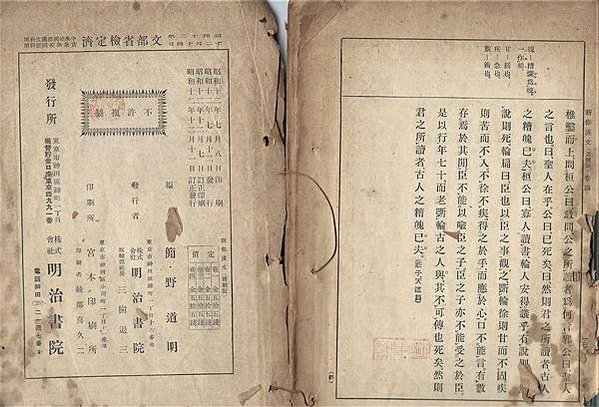 甘、緩也、
疾、急也、
數、術也、
椎鑿而上問桓公曰敢問公之所讀者爲何言邪公曰聖人
之言也曰聖人在乎公曰已死矣曰然則君之所讀者古人
之糟魄已夫桓公曰寡人讀書輪人安得議乎有說則
說則死輪扁曰臣也以臣之事觀之斲輪徐則甘而不固疾
則苦而不入不徐不疾得之於手而應於心口不能言有數
存焉於其間臣不能以喩臣之子臣之子亦不能受之於臣
是以行年七十而老斲輪古之人與其不可傳也死矣然則
君之所讀者古人之糟魄已夫(莊子天道篇)
昭和十三年
十二月十四日
文部省檢定濟
昭和十二年七月八日印刷
昭和十二年
昭和十二年十二月七日訂正印刷
昭和十二年十二月十一日訂正發行
不許複製
定價
編者
簡野道明
東京市神田區錦町一丁目十六番地
發行者
株式會社
明治書院
取締役社長
三樹退三
印刷者
綾部喜久二
印刷所
宮本印刷所
發行所
東京市神田區錦町一丁目
振替貯金口座東京四九九一番
株式會社
明治書院
電話神田(25)二一四七番